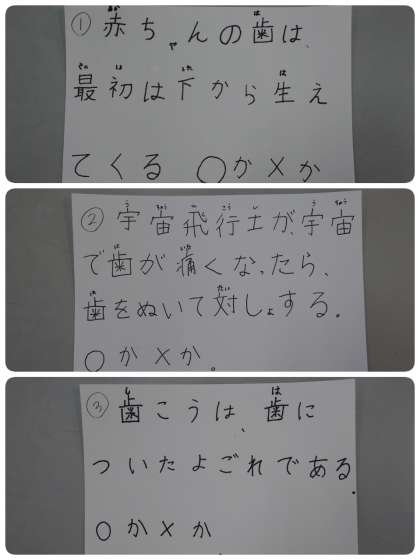 ①赤ちゃんの歯は、
最初は下から生え
てくる ○か×か
②宇宙飛行士が、宇宙
で歯が痛くなったら、
歯をぬいて対しょする。
○か×か。
③歯こうは、歯に
ついたよごれである。
○か×か